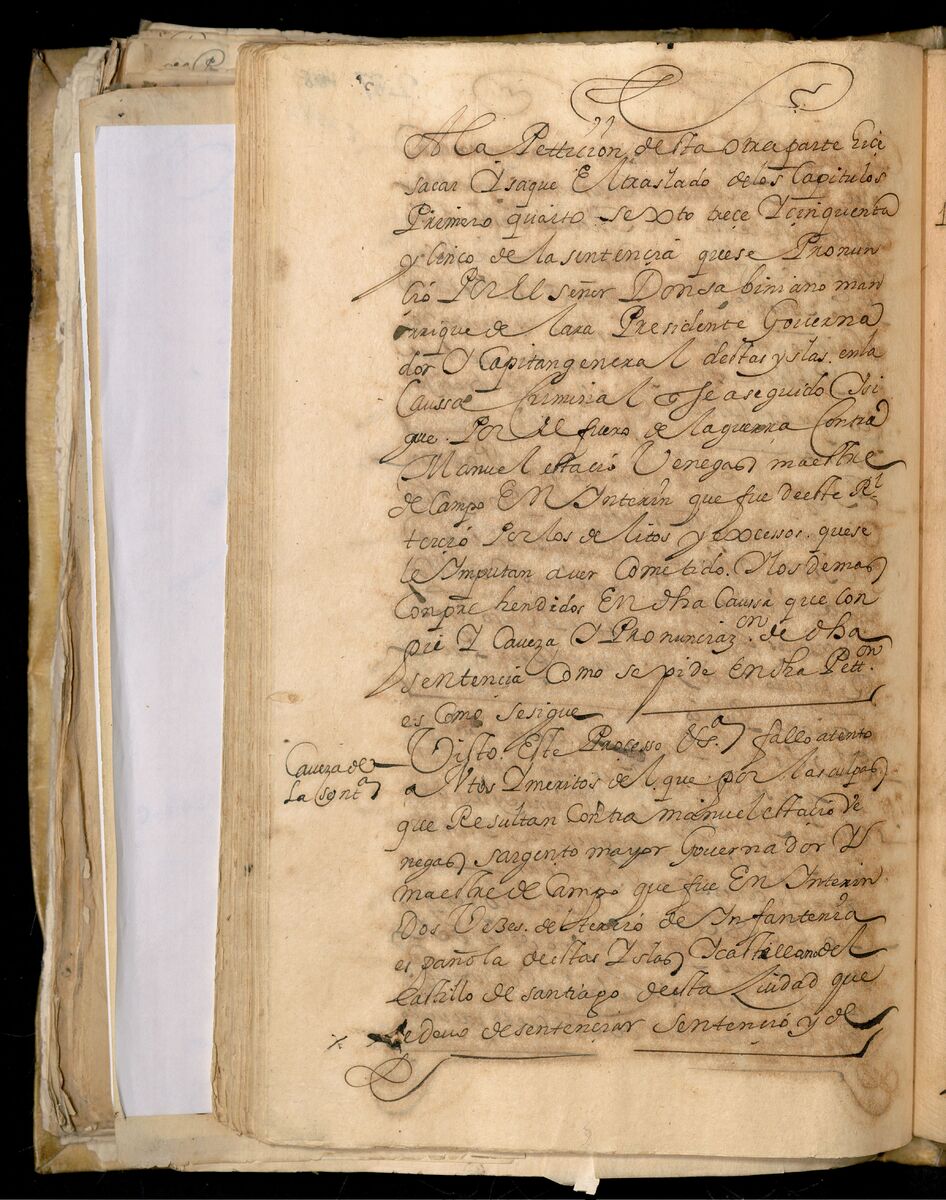 A la Pettición desta otra parte hice
sacar Y saque El traslado delos Capitulos
Primero quarto sexto trece Y cinquenta
y cinco de la sentencia que se Pronun
ció Por El señor Don sabiniano man
rrique de lara Presidente Governa
dor Y Capitan general destas yslas en la
Caussa Criminal q Se a seguido Y si
gue Por El fuero de la guerra Contra
Manuel estacio Venegas maestre
de Campo En Ynterin que fue deste Rl
tercio Por los delitos y excessos que se
le Ymputan aver Cometido Y los demas
Conprehendidos En dha Caussa que con
pie Y Caveza Y Pronunciazon de dha
sentencia Como se pide En dha Petton
es Como se sigue
Caveza de
La sonta
Visto Este Processo &sa fallo atento
a Autos Y meritos del que por las culpas
que Resultan Contra manuel estacio Ve
negas sargento mayor Governador Y
maestre de Campo que fue En Ynterin
Dos Vezes del tercio de Ynfanteria
española destas Yslas Y castellano del
Castillo de santiago desta Ciudad que
le devo de sentenciar Sentenció y de